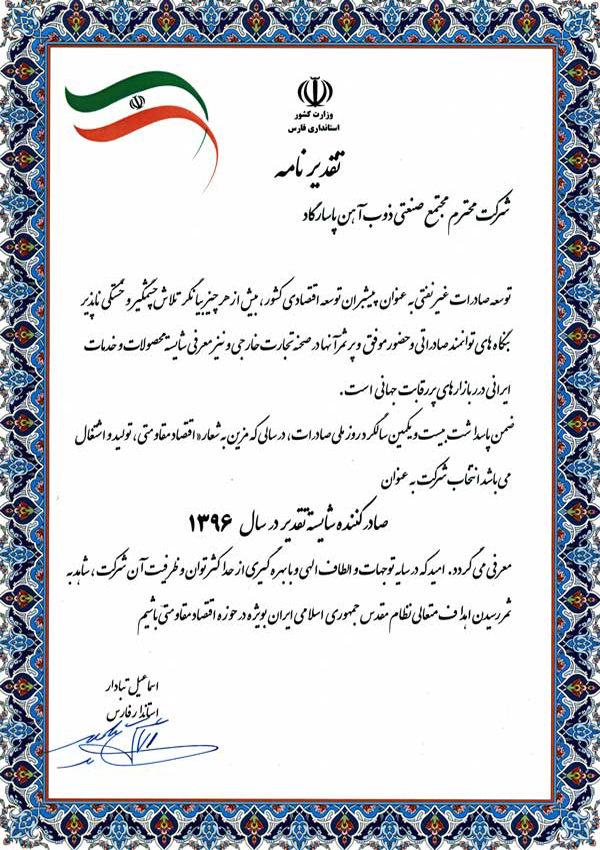 وزارت کشور
استانداری فارس
تقدیر نامه
شرکت محترم مجتمع صنعتی ذوب آهن پاسارگاد
توسعه صادرات غیر نفتی به عنوان پیشران توسعه اقتصادی کشور، بیش از هر چیز بیانگر تلاش چشمگیر و خستگی ناپذیر
بنگاه های توانمند صادراتی و حضور موفق و پر ثمر آنها در صحنه تجارت خارجی و نیز معرفی شایسته محصولات و خدمات
ایرانی در بازارهای پر رقابت جهانی است.
ضمن پاسداشت بیست و یکمین سالگرد روز ملی صادرات، در سالی که مزین به شعار «اقتصاد مقاومتی، تولید و اشتغال
می باشد انتخاب شرکت به عنوان
صادر کننده شایسته تقدیر در سال ۱۳۹۶
معرفی می گردد. امید که در سایه توجهات و الطاف الهی و با بهره گیری از حداکثر توان و ظرفیت آن شرکت، شاهد به
ثمر رسیدن اهداف متعالی نظام مقدس جمهوری اسلامی ایران بویژه در حوزه اقتصاد مقاومتی باشیم
اسماعیل تبادار
استاندار فارس